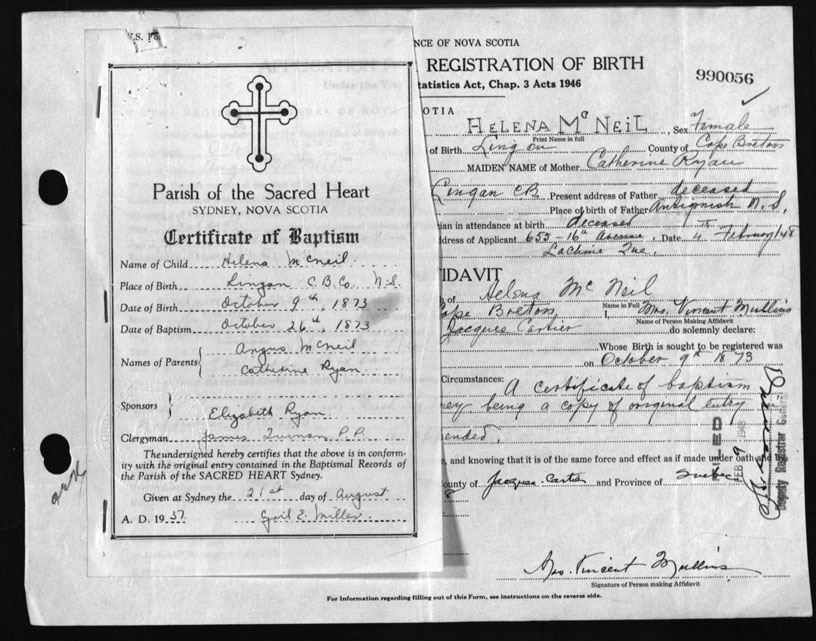 V.S.
Parish of the Sacred Heart
SYDNEY, NOVA SCOTIA
Certificate of Baptism
Name of Child Helena McNeil
Place of Birth Lingan C.B.Co. N.S.
Date of Birth October 9th, 1873
Date of Baptism October 26th, 1873
Names of Parents { Angus McNeil
Catherine Ryan
Sponsors {
Elizabeth Ryan
Clergyman James P.P.
The undersigned hereby certifies that the above is in conform-
ity with the original entry contained in the Baptismal Records of
the Parish of the SACRED HEART Sydney.
Given at Sydney the 21st day of August
A. D. 1937. E. Miller
NCE OF NOVA SCOTIA
REGISTRATION OF BIRTH
tatistics Act, Chap. 3 Acts 1946
990056
OTIA
HELENA McNEIL, Sex Female
Print Name in full
of Birth Lingan County of Cape Breton
MAIDEN NAME of Mother Catherine Ryan
Lingan C.B. Present address of Father deceased
Place of birth of Father Antigonish N.S.
ian in attendance at birth deceased
ddress of Applicant 653-16th Avenue, Date 4th February/48
Lachine Que.
FIDAVIT
of Helena McNeil
Name in Full
Cape Breton I, Mrs. Vincent Mullins
Name of Person Making Affidavit
Jacques Cartier do solemnly declare:
Whose Birth is sought to be registered was
on October 9th 1873
Circumstances: A certificate of baptism
being a copy of original entry in
, and knowing that it is of the same force and effect as if made under oath and
ounty of Jacques-Cartier and Province of Quebec
FEB 9 1948
Deputy Registrar General
Mrs. Vincent Mullins
Signature of Person making Affidavit
For Information regarding filling out of this Form, see instructions on the reverse side.